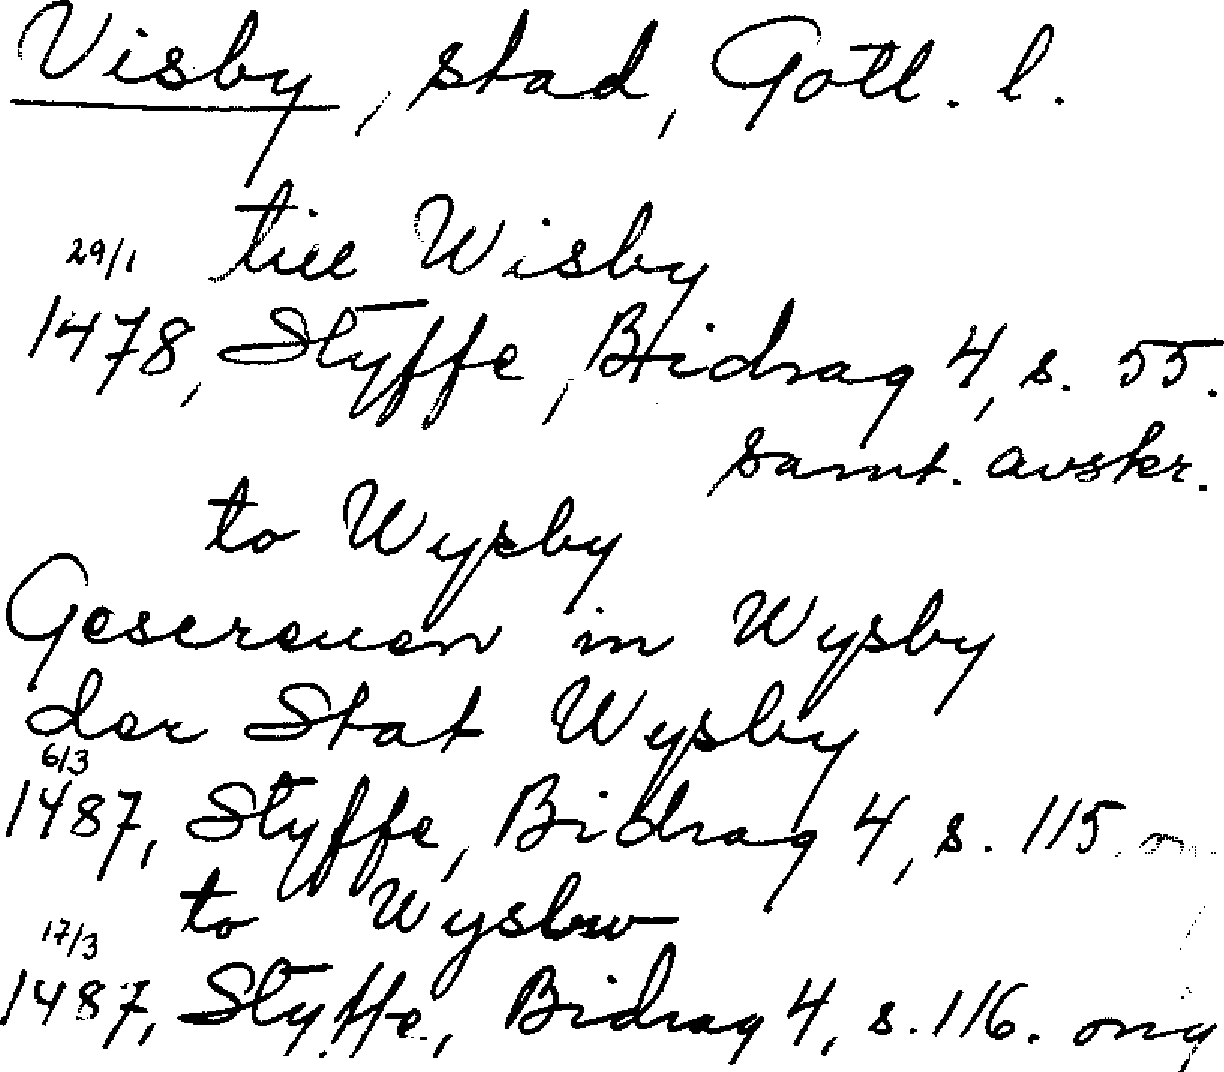 Visby, stad, Gotl. l.
29/1 till Wisby
1478, Styffe, Bidrag 4, s. 55.
samt. avskr.
to Wysby
Gescreuen in Wysby
der Stat Wysby
6/3
1487, Styffe, Bidrag 4, s. 115.
to Wysbw
17/3
1487, Styffe, Bidrag 4, s. 116. orig